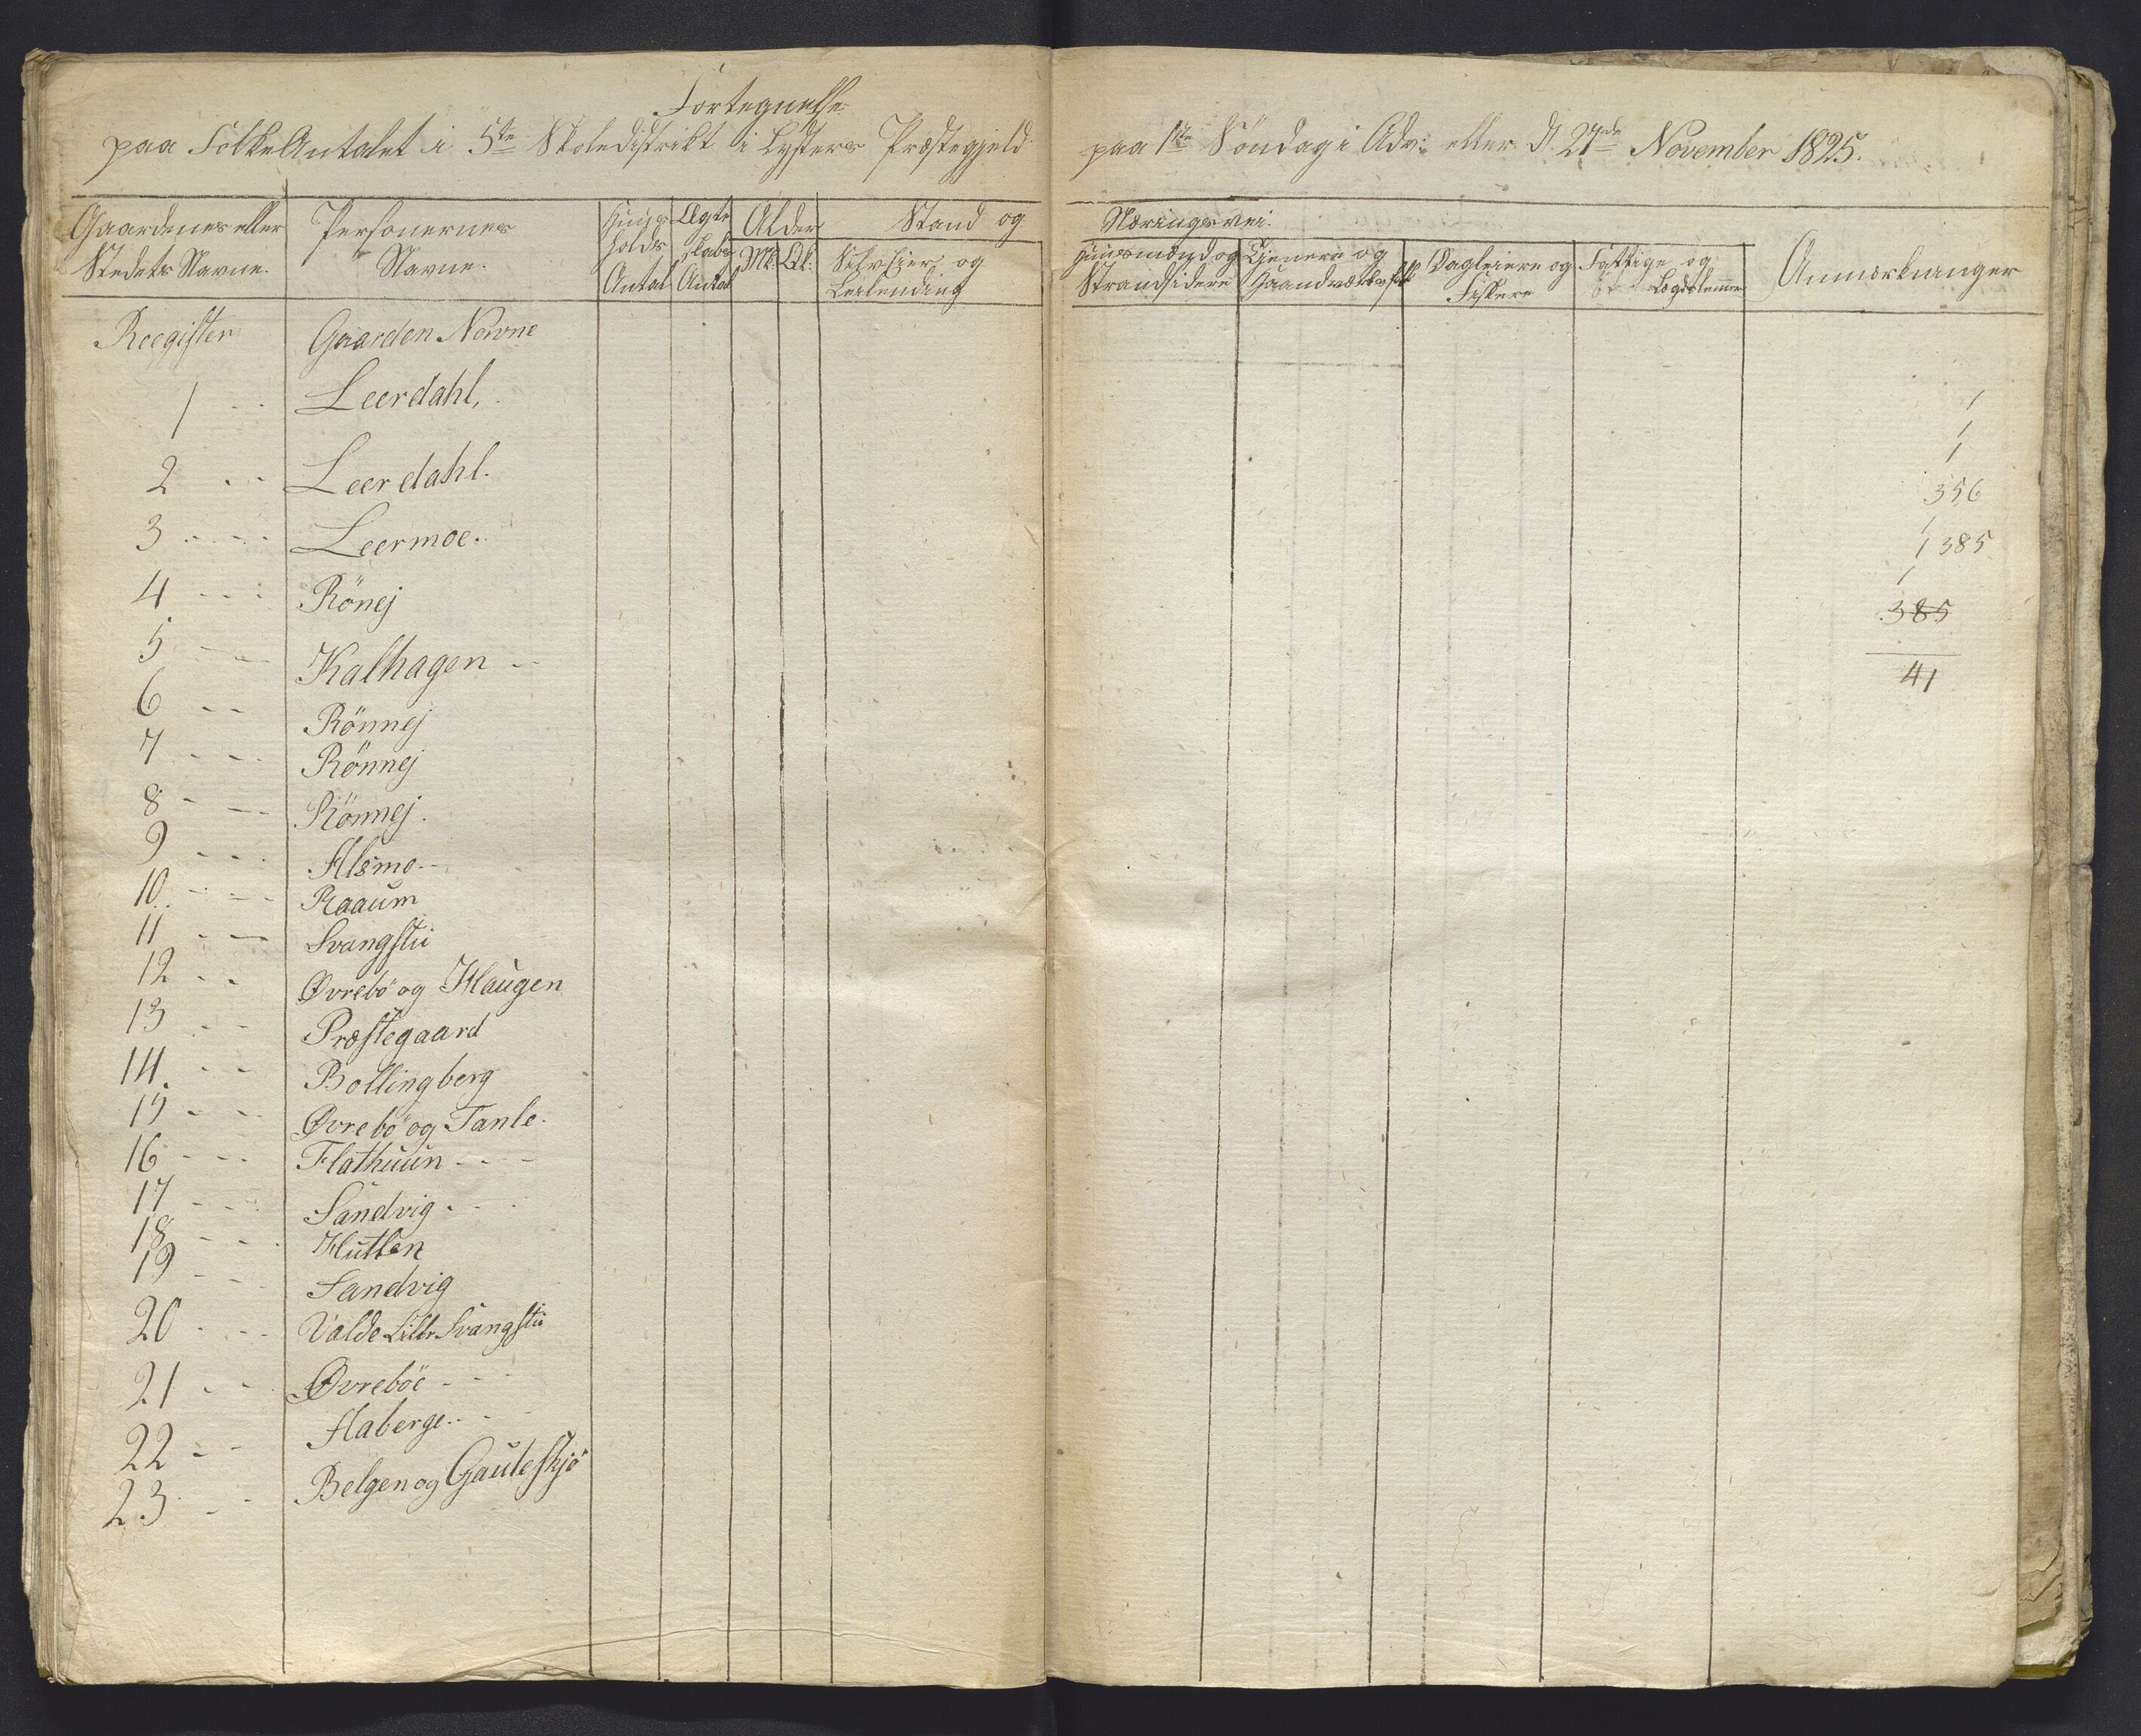 Fortegnelse
paa FolkeAntalet i 5te Skoledistrikt i Lysters Præstegjeld paa 1ste Søndag i Adv: eller d. 27de November 1825.
Gaardenes eller Stedets Navne.
Personernes Navne.
Huus holds Antal
Ægte skabs Antal
Alder
Mk: Qk:
Stand og Næringsvei.
Selveier og Leilending
Huusmænd og Strandsidere
Tjenere og Haandværksfolk
Dagleiere og Fiskere
Fattige og Lægdslemmer
Anmærkninger
Reegister Gaarden Navne
1 - - Leerdahl,
2 - - Leerdahl.
3 - - - - Leermoe.
4 - - - Rönej
5 - - - Kalhagen - -
6 - - Rönnej
7 - - - Rönnej
8 - - - Rönnej.
9 - - - Alsmo - -
10 - - - Raaum
11 - - Svangstu
12 - - Øvrebö og Haugen
13 - - Præstegaard
14. - - Bollingberg
15 - - Øvrebö og Tanle.
16 - - - Flathuun - - -
17 - - - Sandvig - - -
18 - - - Hutlen
19 - - Sandvig
20 - - - Valde Lille Svangstu
21 - - Øvreböe - - -
22 - - Haberge - - -
23 - - Belgen og Gauleskjö
1
1
1
356
1
1 385
1
385
41